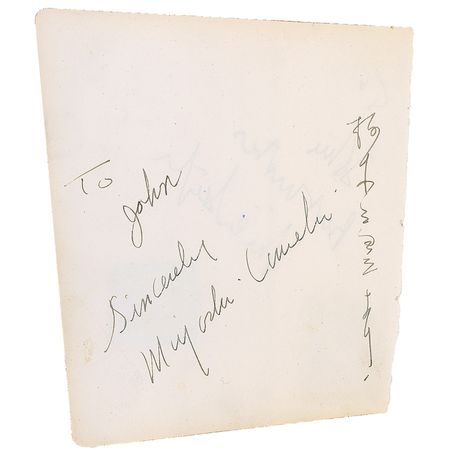 To
John
Sincerely
Miyoshi Umeki
梅木